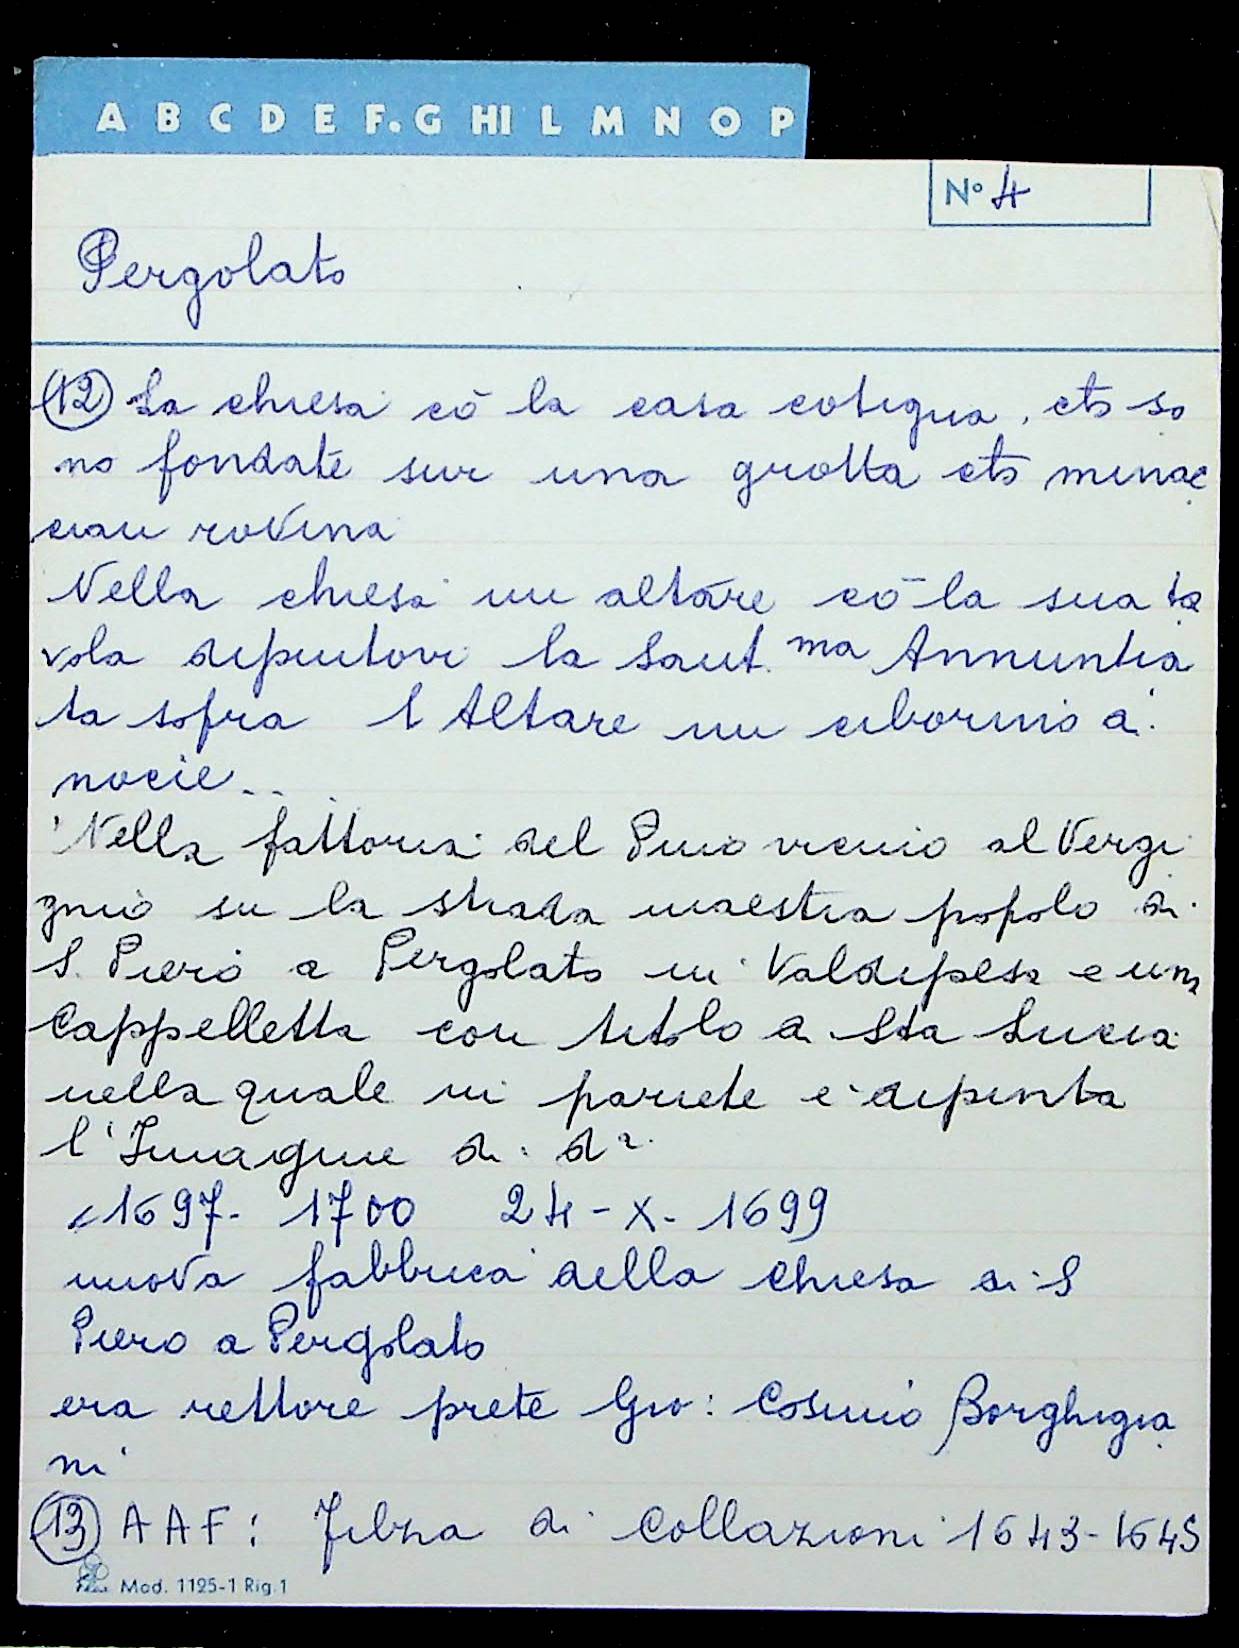 A B C D E F. G HI L M N O P
N° 4
Pergolato
(12) La chiesa cō la casa cotigua, etò so
no fondate sur una grotta etò minac
cian rovina
Nella chiesa un altare cō la sua ta
vola dipintovi la Sant.ma Annuntia
ta sopra l Altare un ciborino di
nocie..
Nella fattoria del Pino vicino al Vergi
gnio su la strada maestra popolo di
S. Piero a Pergolato in Valdipesa e una
Cappelletta con titolo a Sta Lucia
nella quale in pariete è dipinta
l'Imagine di da
1697- 1700 24-X-1699
nuova fabbrica della chiesa di S
Piero a Pergolato
era rettore prete Gio: Cosimo Borghigia
ni
(13) AAF: Filza di Collazioni 1643-1645
Mod. 1125-1 Rig.1